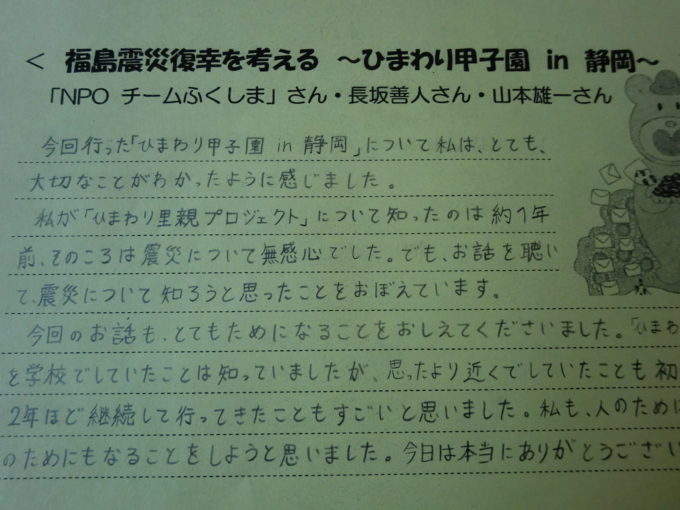 < 福島震災復幸を考える ～ひまわり甲子園 in 静岡～
「NPO チームふくしま」さん・長坂善人さん・山本雄一さん
今回行った「ひまわり甲子園 in 静岡」について私は、とても、
大切なことがわかったように感じました。
私が「ひまわり里親プロジェクト」について知ったのは約1年
前、そのころは震災について無感心でした。でも、お話を聴い
て、震災について知ろうと思ったことをおぼえています。
今回のお話も、とてもためになることをおしえてくださいました。「ひまわ
を学校でしていたことは知っていましたが、思ったより近くでしていたことも初
2年ほど継続して行ってきたこともすごいと思いました。私も、人のために
のためにもなることをしようと思いました。今日は本当にありがとうござい